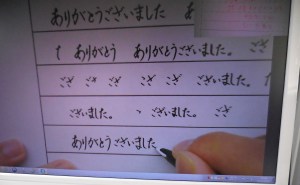 ありがとうございました あ
t ありがとう ありがとうございました。 ござ
ござ ござ ござ ござ ござ ござ
ございました。 、 ございました。 ござ
ありがとうございました